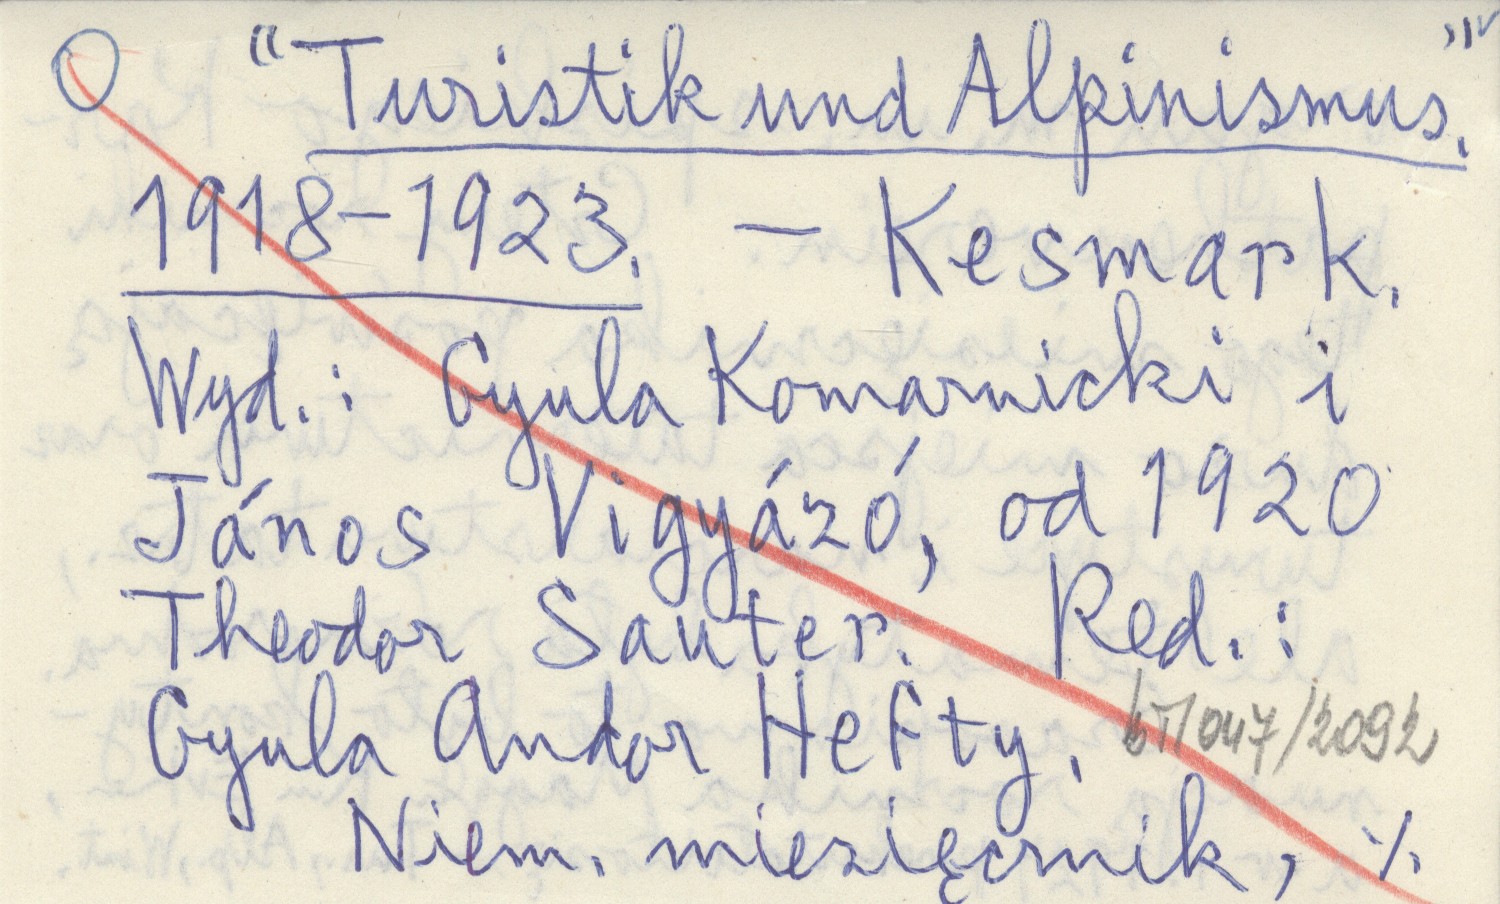 "Turistik und Alpinismus."
1918-1923. — Kesmark.
Wyd.: Gyula Komarnicki i
János Vigyázó, od 1920
Theodor Sauter. Red.:
Gyula Andor Hefty.
bT/047/2092
Niem. miesięcznik, ./.